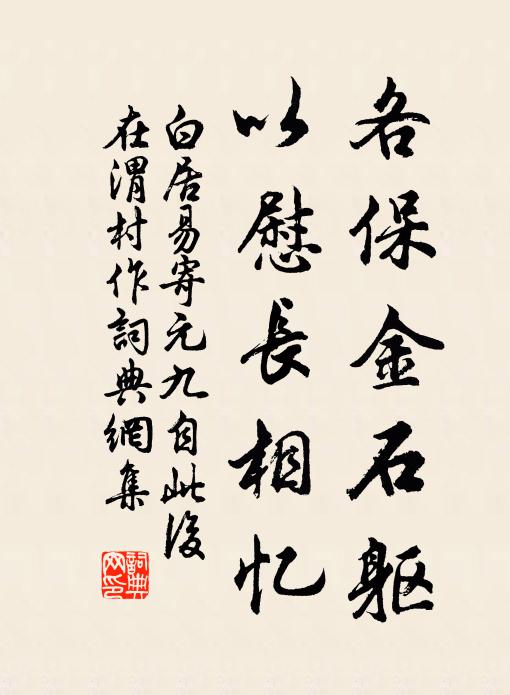 各保金石躯
以慰長相忆
白居易寄元九自此後
在渭村作詞典網集
詞典
网印